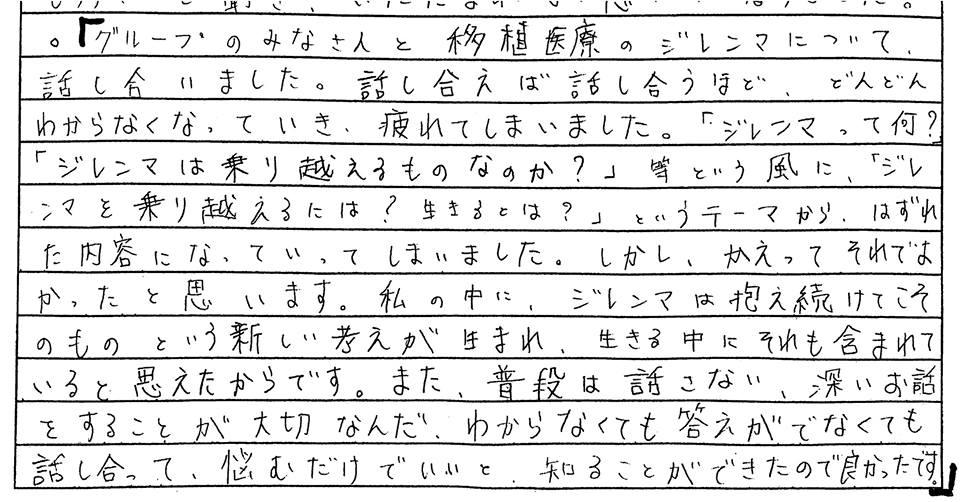 。「グループのみなさんと移植医療のジレンマについて、
話し合いました。話し合えば話し合うほど、どんどん
わからなくなっていき、疲れてしまいました。「ジレンマって何？」
「ジレンマは乗り越えるものなのか？」等という風に、「ジレ
ンマを乗り越えるには？生きるとは？」というテーマから、はずれ
た内容になっていってしまいました。しかし、かえってそれでよ
かったと思います。私の中に、ジレンマは抱え続けてこそ
のものという新しい考えが生まれ、生きる中にそれも含まれて
いると思えたからです。また、普段は話さない、深いお話
をすることが大切なんだ、わからなくても答えがでなくても
話し合って、悩むだけでいいと、知ることができたので良かったです。」